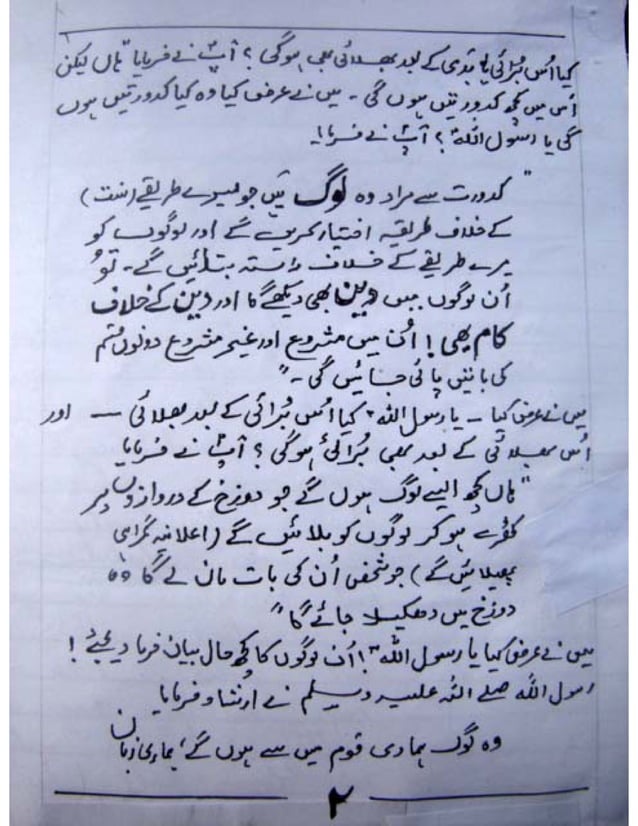 کیا اُس بُرائی یا بدی کے بعد بھلائی بھی ہوگی؟ آپؐ نے فرمایا "ہاں لیکن
اُس میں کچھ کدورتیں ہوں گی ۔ میں نے عرض کیا وہ کیا کدورتیں ہوں
گی یا رسول اللہؐ؟ آپؐ نے فرمایا۔
"کدورت سے مراد وہ لوگ ہیں جو میرے طریقے (سنت)
کے خلاف طریقہ اختیار کریں گے اور لوگوں کو
میرے طریقے کے خلاف راستہ بتلائیں گے۔ تُو
اُن لوگوں میں دین بھی دیکھے گا اور دین کے خلاف
کام بھی! اُن میں مشروع اور غیر مشروع دونوں قسم
کی باتیں پائی جائیں گی۔"
میں نے عرض کیا ۔ یا رسول اللہؐ کیا اُس بُرائی کے بعد بھلائی — اور
اُس بھلائی کے بعد بھی بُرائی ہوگی؟ آپؐ نے فرمایا
"ہاں کچھ ایسے لوگ ہوں گے جو دوزخ کے دروازوں پر
کھڑے ہوکر لوگوں کو بلائیں گے (اعلانیہ گمراہی
پھیلائیں گے) جو شخص اُن کی بات مان لے گا وہ
دوزخ میں دھکیلا جائے گا"
میں نے عرض کیا یا رسول اللہؐ! اُن لوگوں کا کچھ حال بیان فرما دیجئے!
رسول اللہ صلے اللہ علیہ وسلم نے ارشاد فرمایا
وہ لوگ ہماری قوم میں سے ہوں گے، ہماری زبان
۲